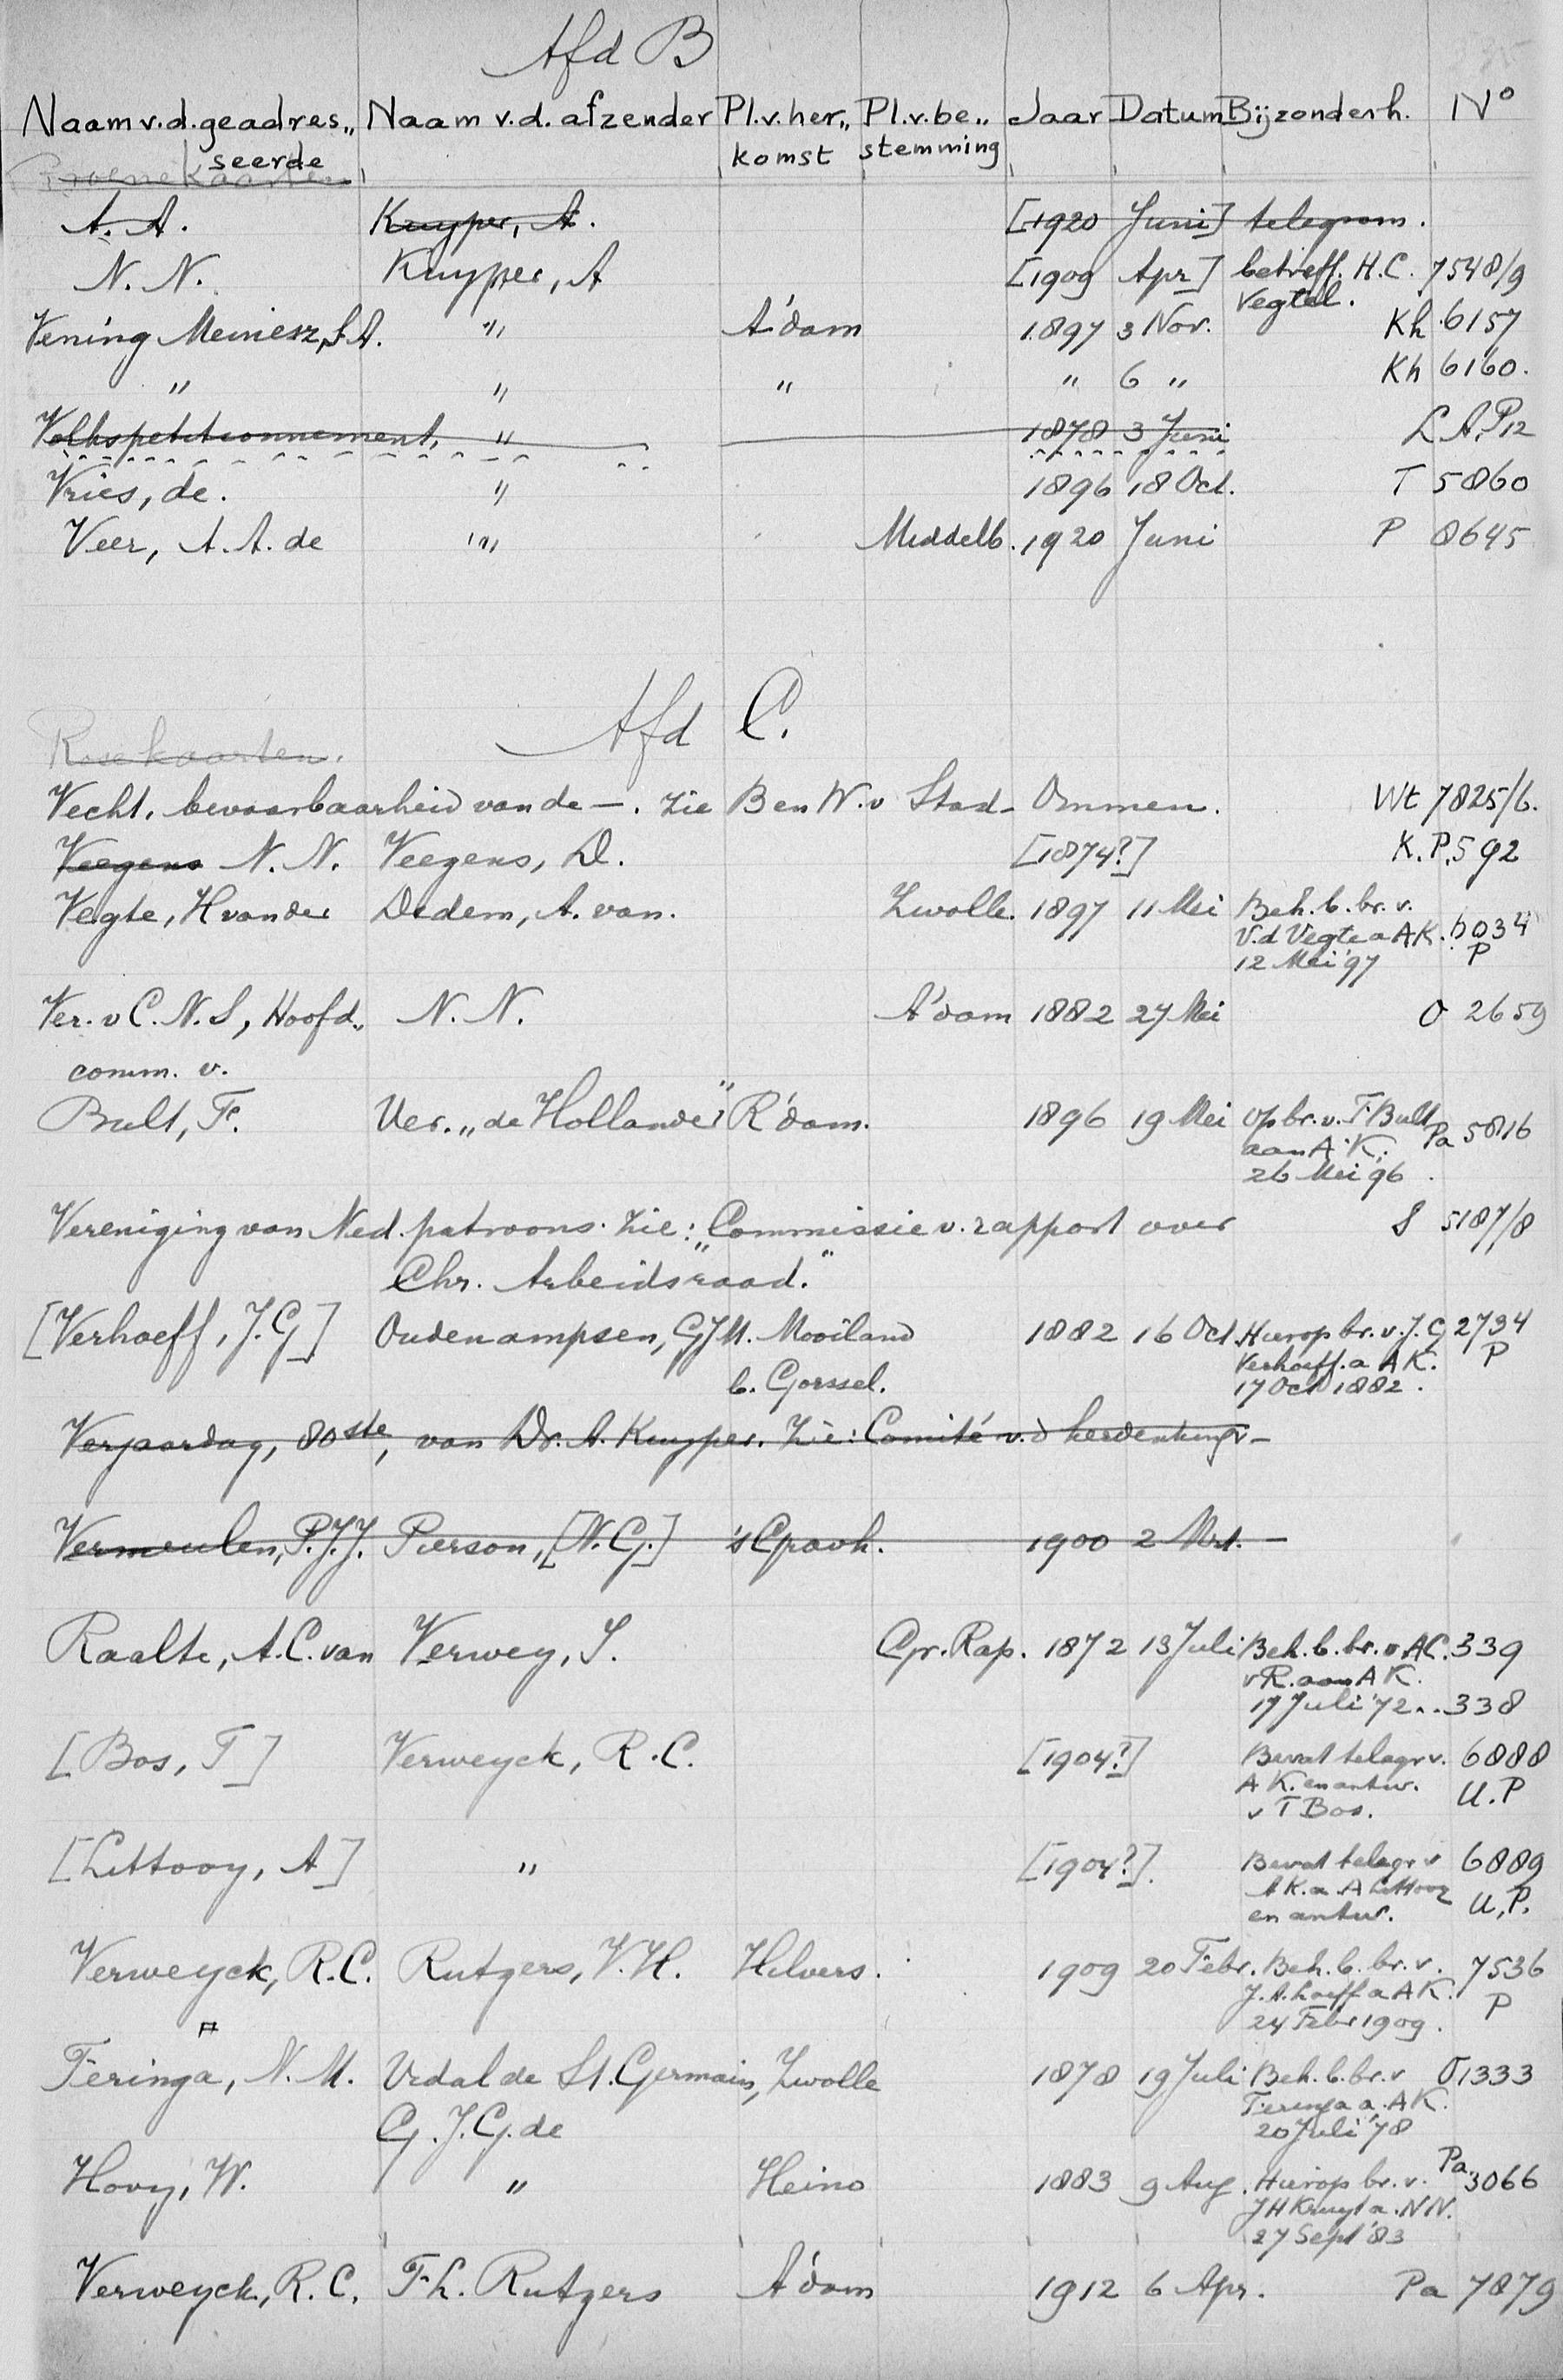 Afd B
Naam v.d. geadres„ Naam v.d. afzender Pl.v.her„ Pl.v.be„ Jaar Datum Bijzonderh. No
seerde komst stemming
Groene kaarten
A. A. Kuyper, A. [1920 Juni] telegram.
N. N. Kuyper, A [1909 Apr] betreff. H.C. 7548/9
Vegtel.
Vening Meinesz, S.A. " A'dam 1897 3 Nov. Kh 6157
" " " " 6 " Kh 6160.
Volkspetitionnement, " 1878 3 Juni L.A.P.12
Vries, de. " 1896 18 Oct. T 5860
Veer, A. A. de " Middelb. 1920 Juni P 8645
Afd C.
Rose kaarten.
Vecht, bevaarbaarheid van de —. Zie B en W. v Stad- Ommen. Wt 7825/6.
Veegens N. N. Veegens, D. [1874?] K.P. 592
Vegte, H van der Dedem, A. van. Zwolle. 1897 11 Mei Beh. b. br. v.
V.d Vegte a AK. 6034
12 Mei '97 P
Ver. v C. N. S, Hoofd„ N. N. A'dam 1882 27 Mei O 2659
comm. v.
Bult, F. Ver. „de Hollander" R'dam. 1896 19 Mei op br. v. F Bult Pa 5816
aan A.K.
26 Mei 96.
Vereniging van Ned. patroons. Zie: Commissie v. rapport over S 5187/8
„Chr. Arbeidsraad."
[Verhoeff, J. G] Oudenampsen, GJM. Mooiland 1882 16 Oct. Hierop br. v. J. G 2734
b. Gorssel. Verhoeff. a AK. P
17 Oct 1882.
Verjaardag, 80ste, van Dr. A. Kuyper. Zie: Comité v. d herdenking v —
Vermeulen, P.J.J. Pierson, [N. G.] 's Gravh. 1900 2 Mrt. —
Raalte, A. C. van Verwey, S. Gr. Rap. 1872 13 Juli Beh. b. br. v AC. 339
v R. aan A K.
17 Juli '72... 338
[Bos, T] Verweyck, R. C. [1904?] Bevat telegr v. 6888
A K. en antw. U.P
v T Bos.
[Littooy, A] " [1904?]. Bevat telegr v 6889
A K. a. A Littooy U.P.
en antw.
Verweyck, R.C. Rutgers, V. H. Hilvers. 1909 20 Febr. Beh. b. br. v. 7536
J. A. Loeff a A K. P
24 Febr 1909.
Feringa, N. M. Vidal de St. Germain, Zwolle 1878 19 Juli Beh. b. br. v O1333
G. J. G. de Feringa a. AK.
20 Juli '78
Hovy, W. " Heino 1883 9 Aug. Hierop br. v. Pa. 3066
JH Kruyt a. NN.
27 Sept '83
Verweyck, R. C. F. L. Rutgers A'dam 1912 6 Apr. Pa 7879